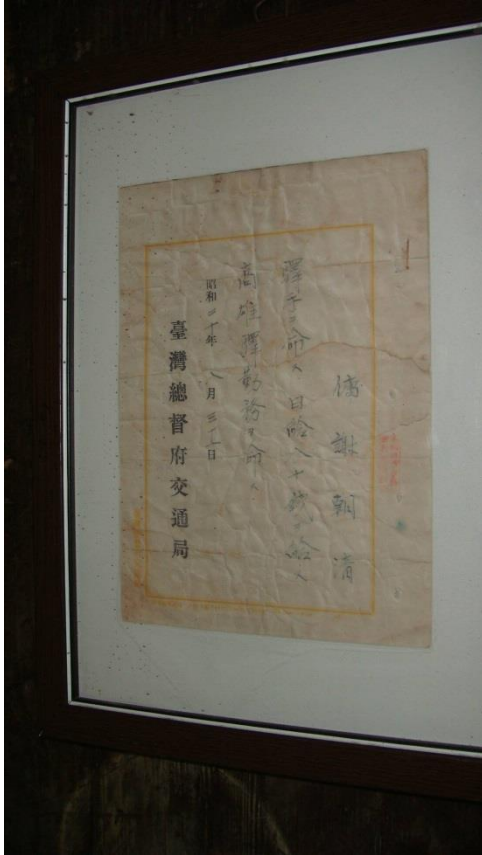 傭 謝朝清
驛手ヲ命ス 日給八十錢ヲ給ス
高雄驛勤務ヲ命ス
昭和二十年 八月三十一日
臺灣總督府交通局